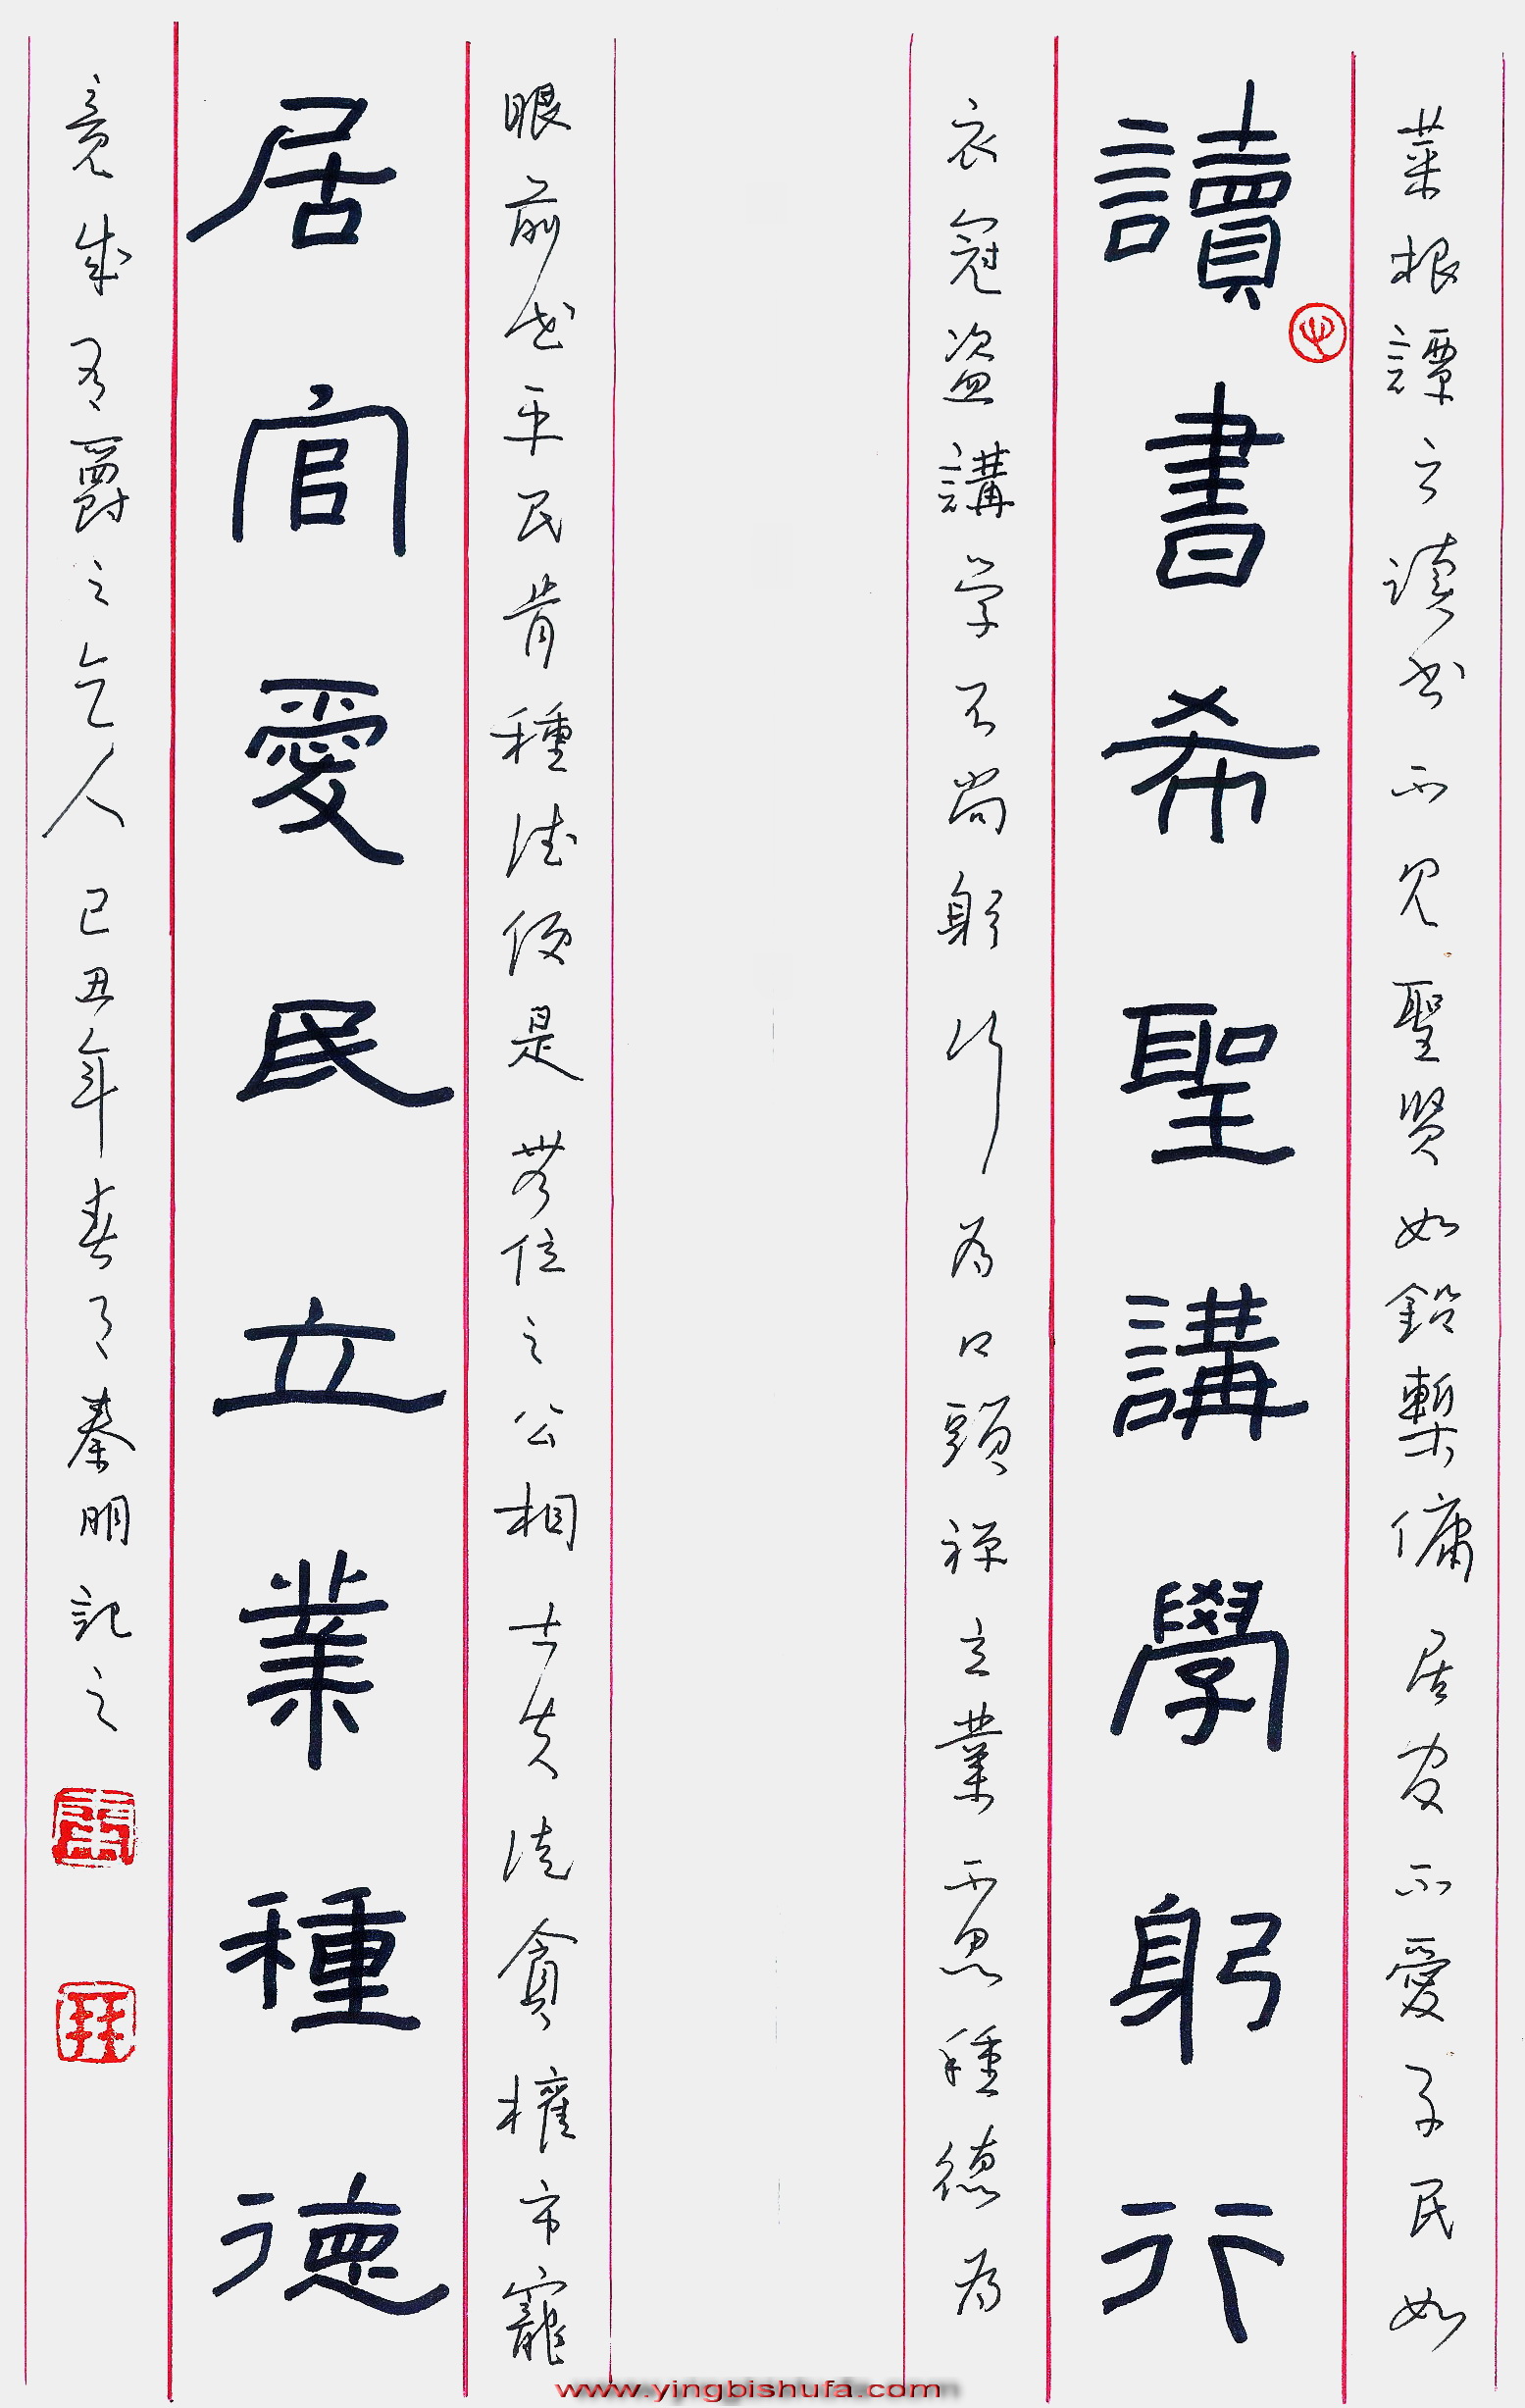 菜根譚云读书不见聖贤如鉛槧傭居官不愛子民如
讀書希聖講學躬行
衣冠盗講学不尚躬行為口頭禅立業不思種德為
眼前花平民肯種德便是無位之公相士夫徒貪權市寵
居官愛民立業種德
竟成有爵之乞人己丑年春月秦明記之
www.yingbishufa.com